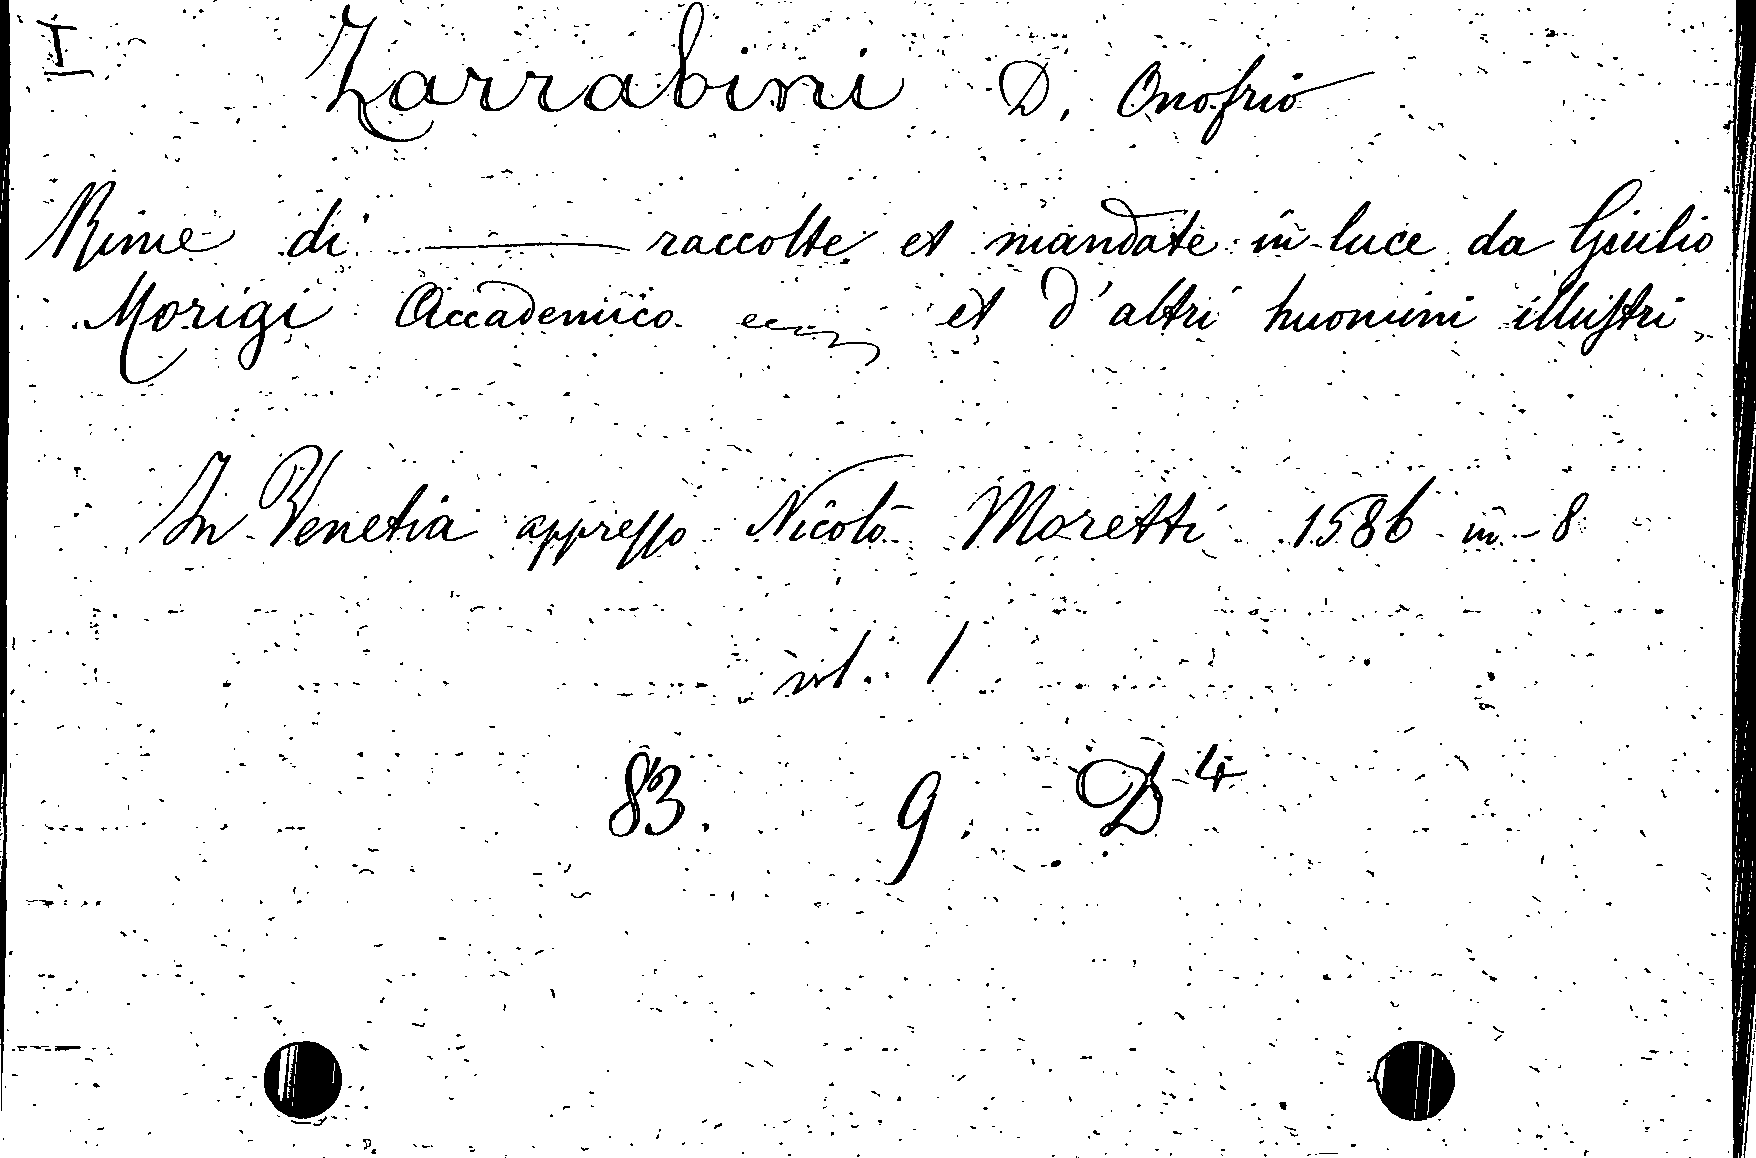 I Zarrabini D. Onofrio
Rime di —— raccolte et mandate in luce da Giulio
Morigi Accademico ecc et d'altri huomini illustri
In Venetia appresso Nicolò Moretti 1586 in-8
vol. 1
83. 9. D⁴